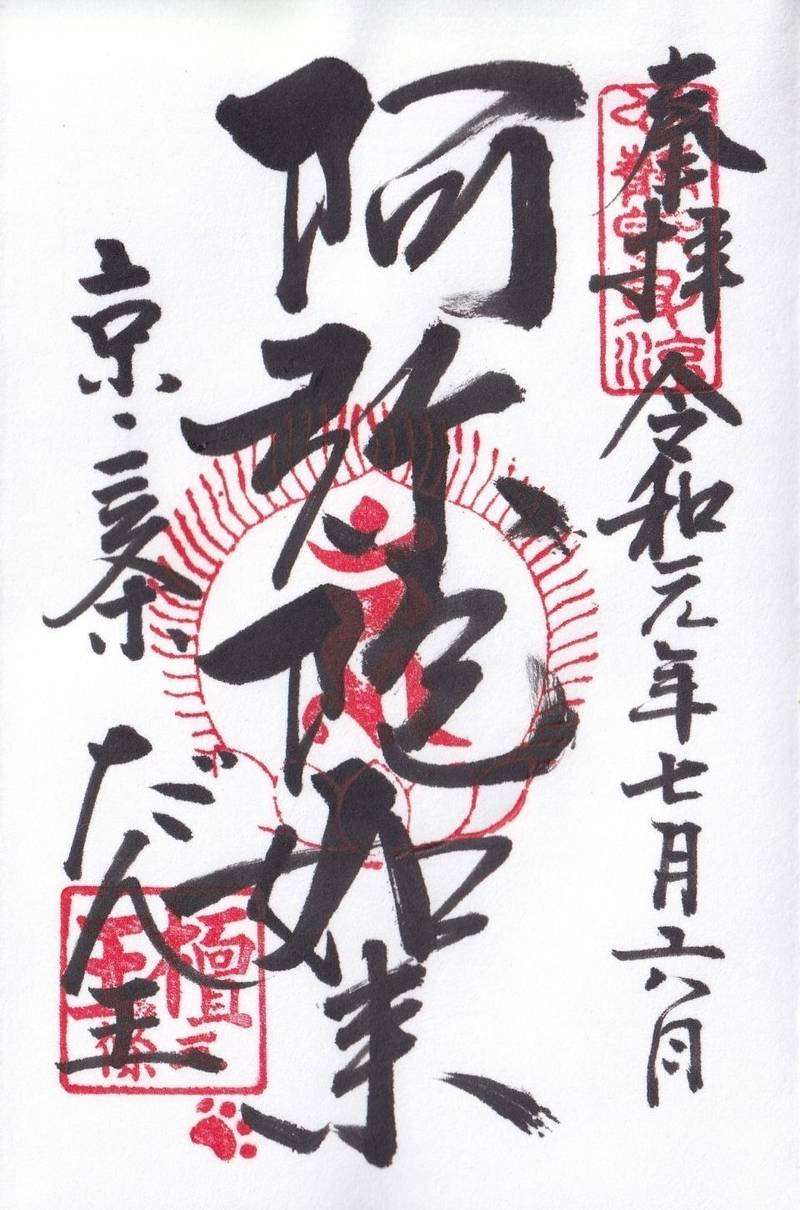 奉拝 令和元年七月六日
阿弥陀如来
京・三条 だん王
檀王
三條